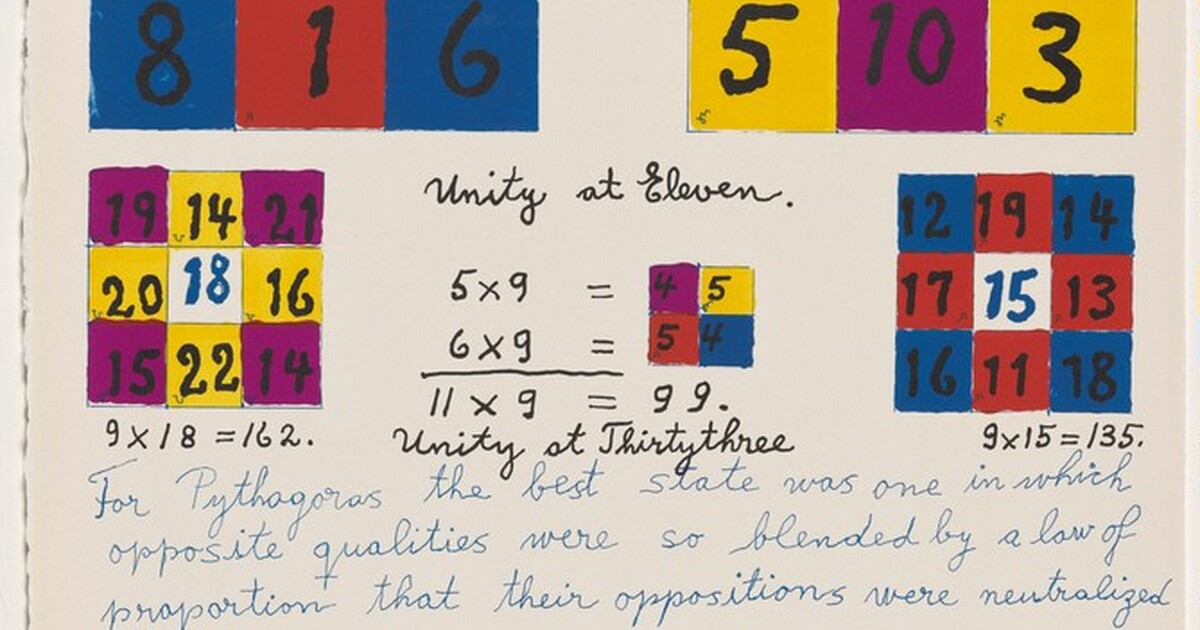 8 1 6 5 10 3
Unity at Eleven.
19 14 21
20 18 16
15 22 14
9×18 =162.
5×9 = 4 5
6×9 = 5 4
11×9 = 99.
Unity at Thirtythree
12 19 14
17 15 13
16 11 18
9×15=135.
For Pythagoras the best state was one in which
opposite qualities were so blended by a law of
proportion that their oppositions were neutralized